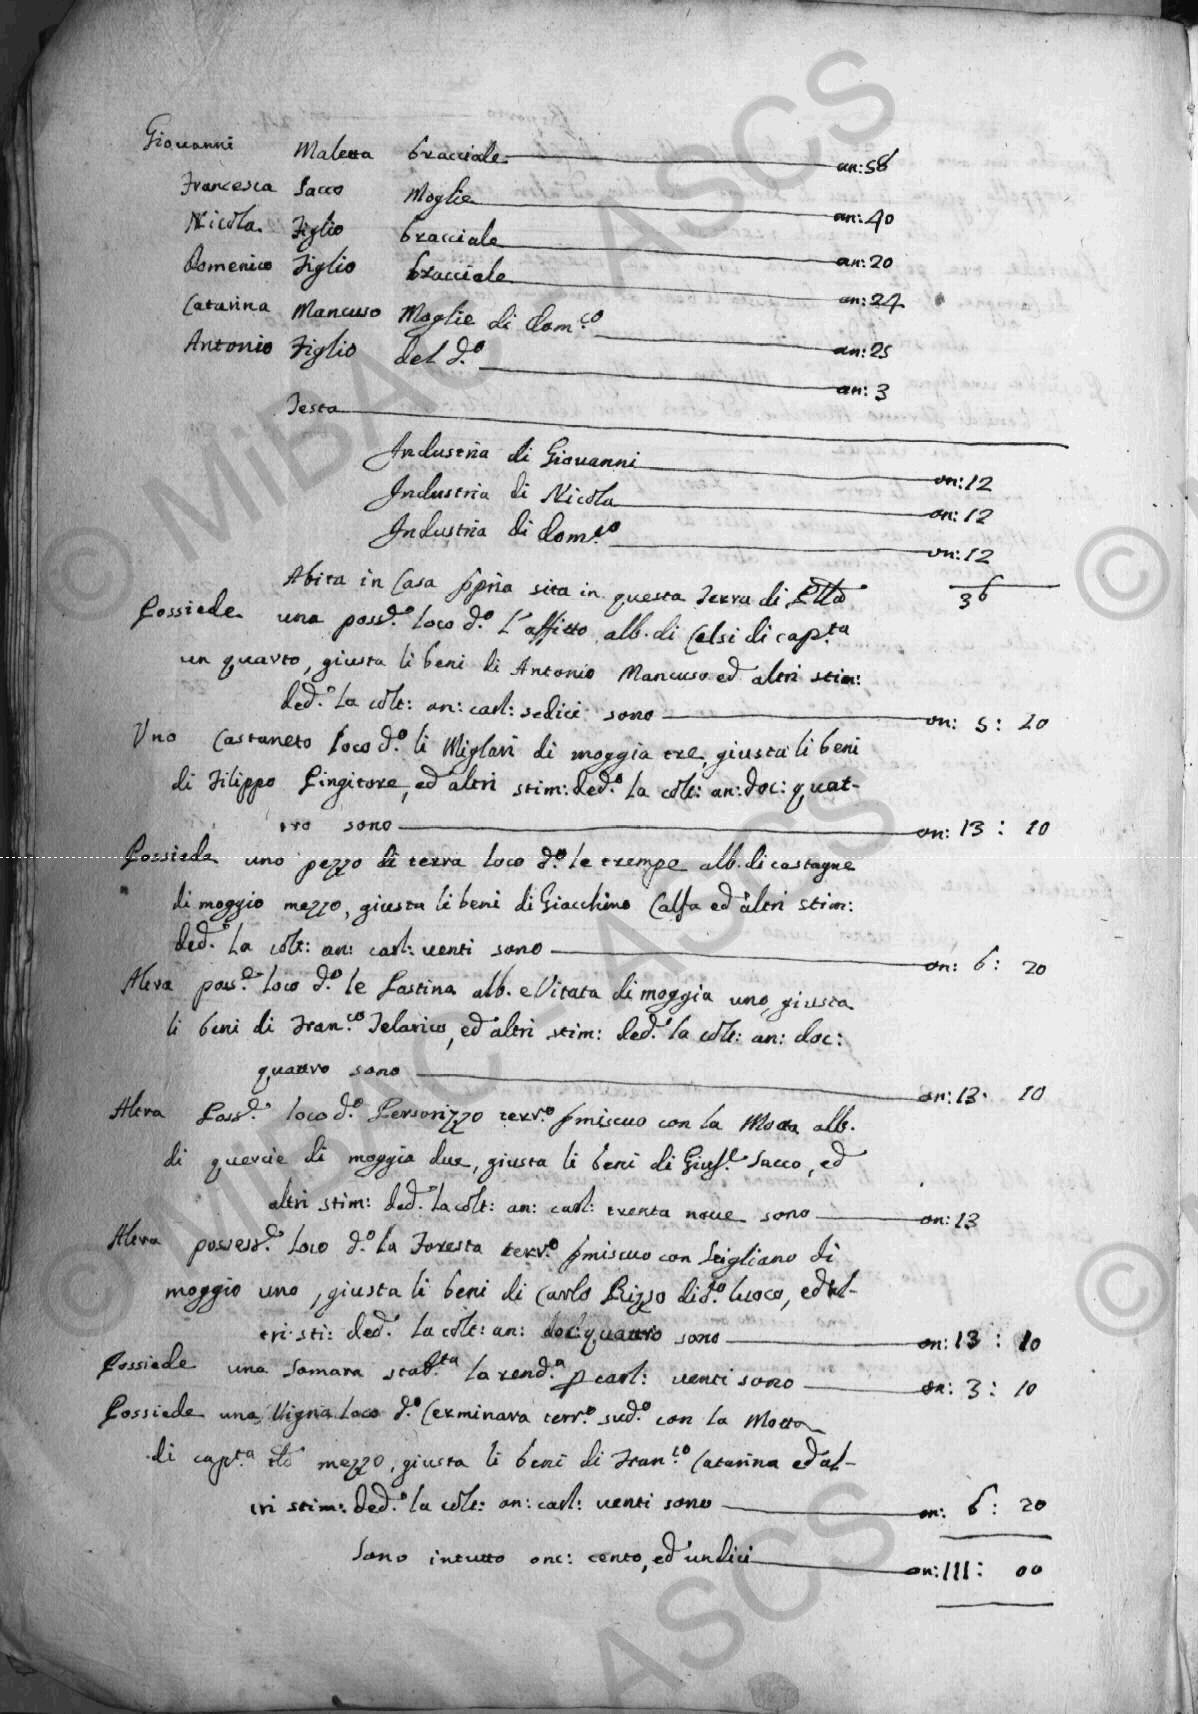 Giouanni Maletta bracciale an: 58
Francesca Sacco Moglie an: 40
Nicola Figlio bracciale an: 20
Domenico Figlio bracciale an: 24
Catarina Mancuso Moglie di Dom.co an: 25
Antonio Figlio del d.o an: 3
Testa
Industria di Giouanni on: 12
Industria di Nicola on: 12
Industria di Dom.co on: 12
Abita in Casa ppria sita in questa Terra di 36
Possiede una poss.e loco d.o L'affitto, alb. di Celsi di cap.ta
un quarto, giusta li beni di Antonio Mancuso ed altri stim:
ded.e la colt: an: carl: sedici sono on: 5: 10
Uno Castaneto loco d.o li Migliari di moggia tre, giusta li beni
di Filippo Pingitore, ed altri stim: ded.e la colt: an: doc: quat-
tro sono on: 13: 10
Possiede uno pezzo di terra loco d.o le trempe alb. di castagne
di moggio mezzo, giusta li beni di Giacchino Calfa ed altri stim:
ded.e la colt: an: carl: uenti sono on: 6: 20
Altra poss.e loco d.o le Pastina alb. e Vitata di moggia uno, giusta
li beni di Fran.co Telarico, ed altri stim: ded.e la colt: an: doc:
quattro sono on: 13. 10
Altra Poss.e loco d.o terr.o pmiscuo con la Motta alb.
di quercie di moggia due, giusta li beni di Gius.e Sacco, ed
altri stim: ded.e la colt: an: carl: trenta noue sono on: 13
Altra possess.e loco d.o la Foresta terr.o pmiscuo con Scigliano di
moggio uno, giusta li beni di Carlo Rizzo di d.to luoco, ed al-
tri sti: ded.e la colt: an: doc: quattro sono on: 13: 10
Possiede una Somara stab.ta la rend.a p carl: uenti sono on: 3: 10
Possiede una Vigna loco d.o Cerminara terr.o sud.o con la Motta
di cap.ta mezzo, giusta li beni di Fran.co Catarina ed al-
tri stim: ded.e la colt: an: carl: uenti sono on: 6: 20
Sono intutto onc: cento, ed undici on: 111: 00
© MiBAC - ASCS
© MiBAC - ASCS
©
©
ASCS